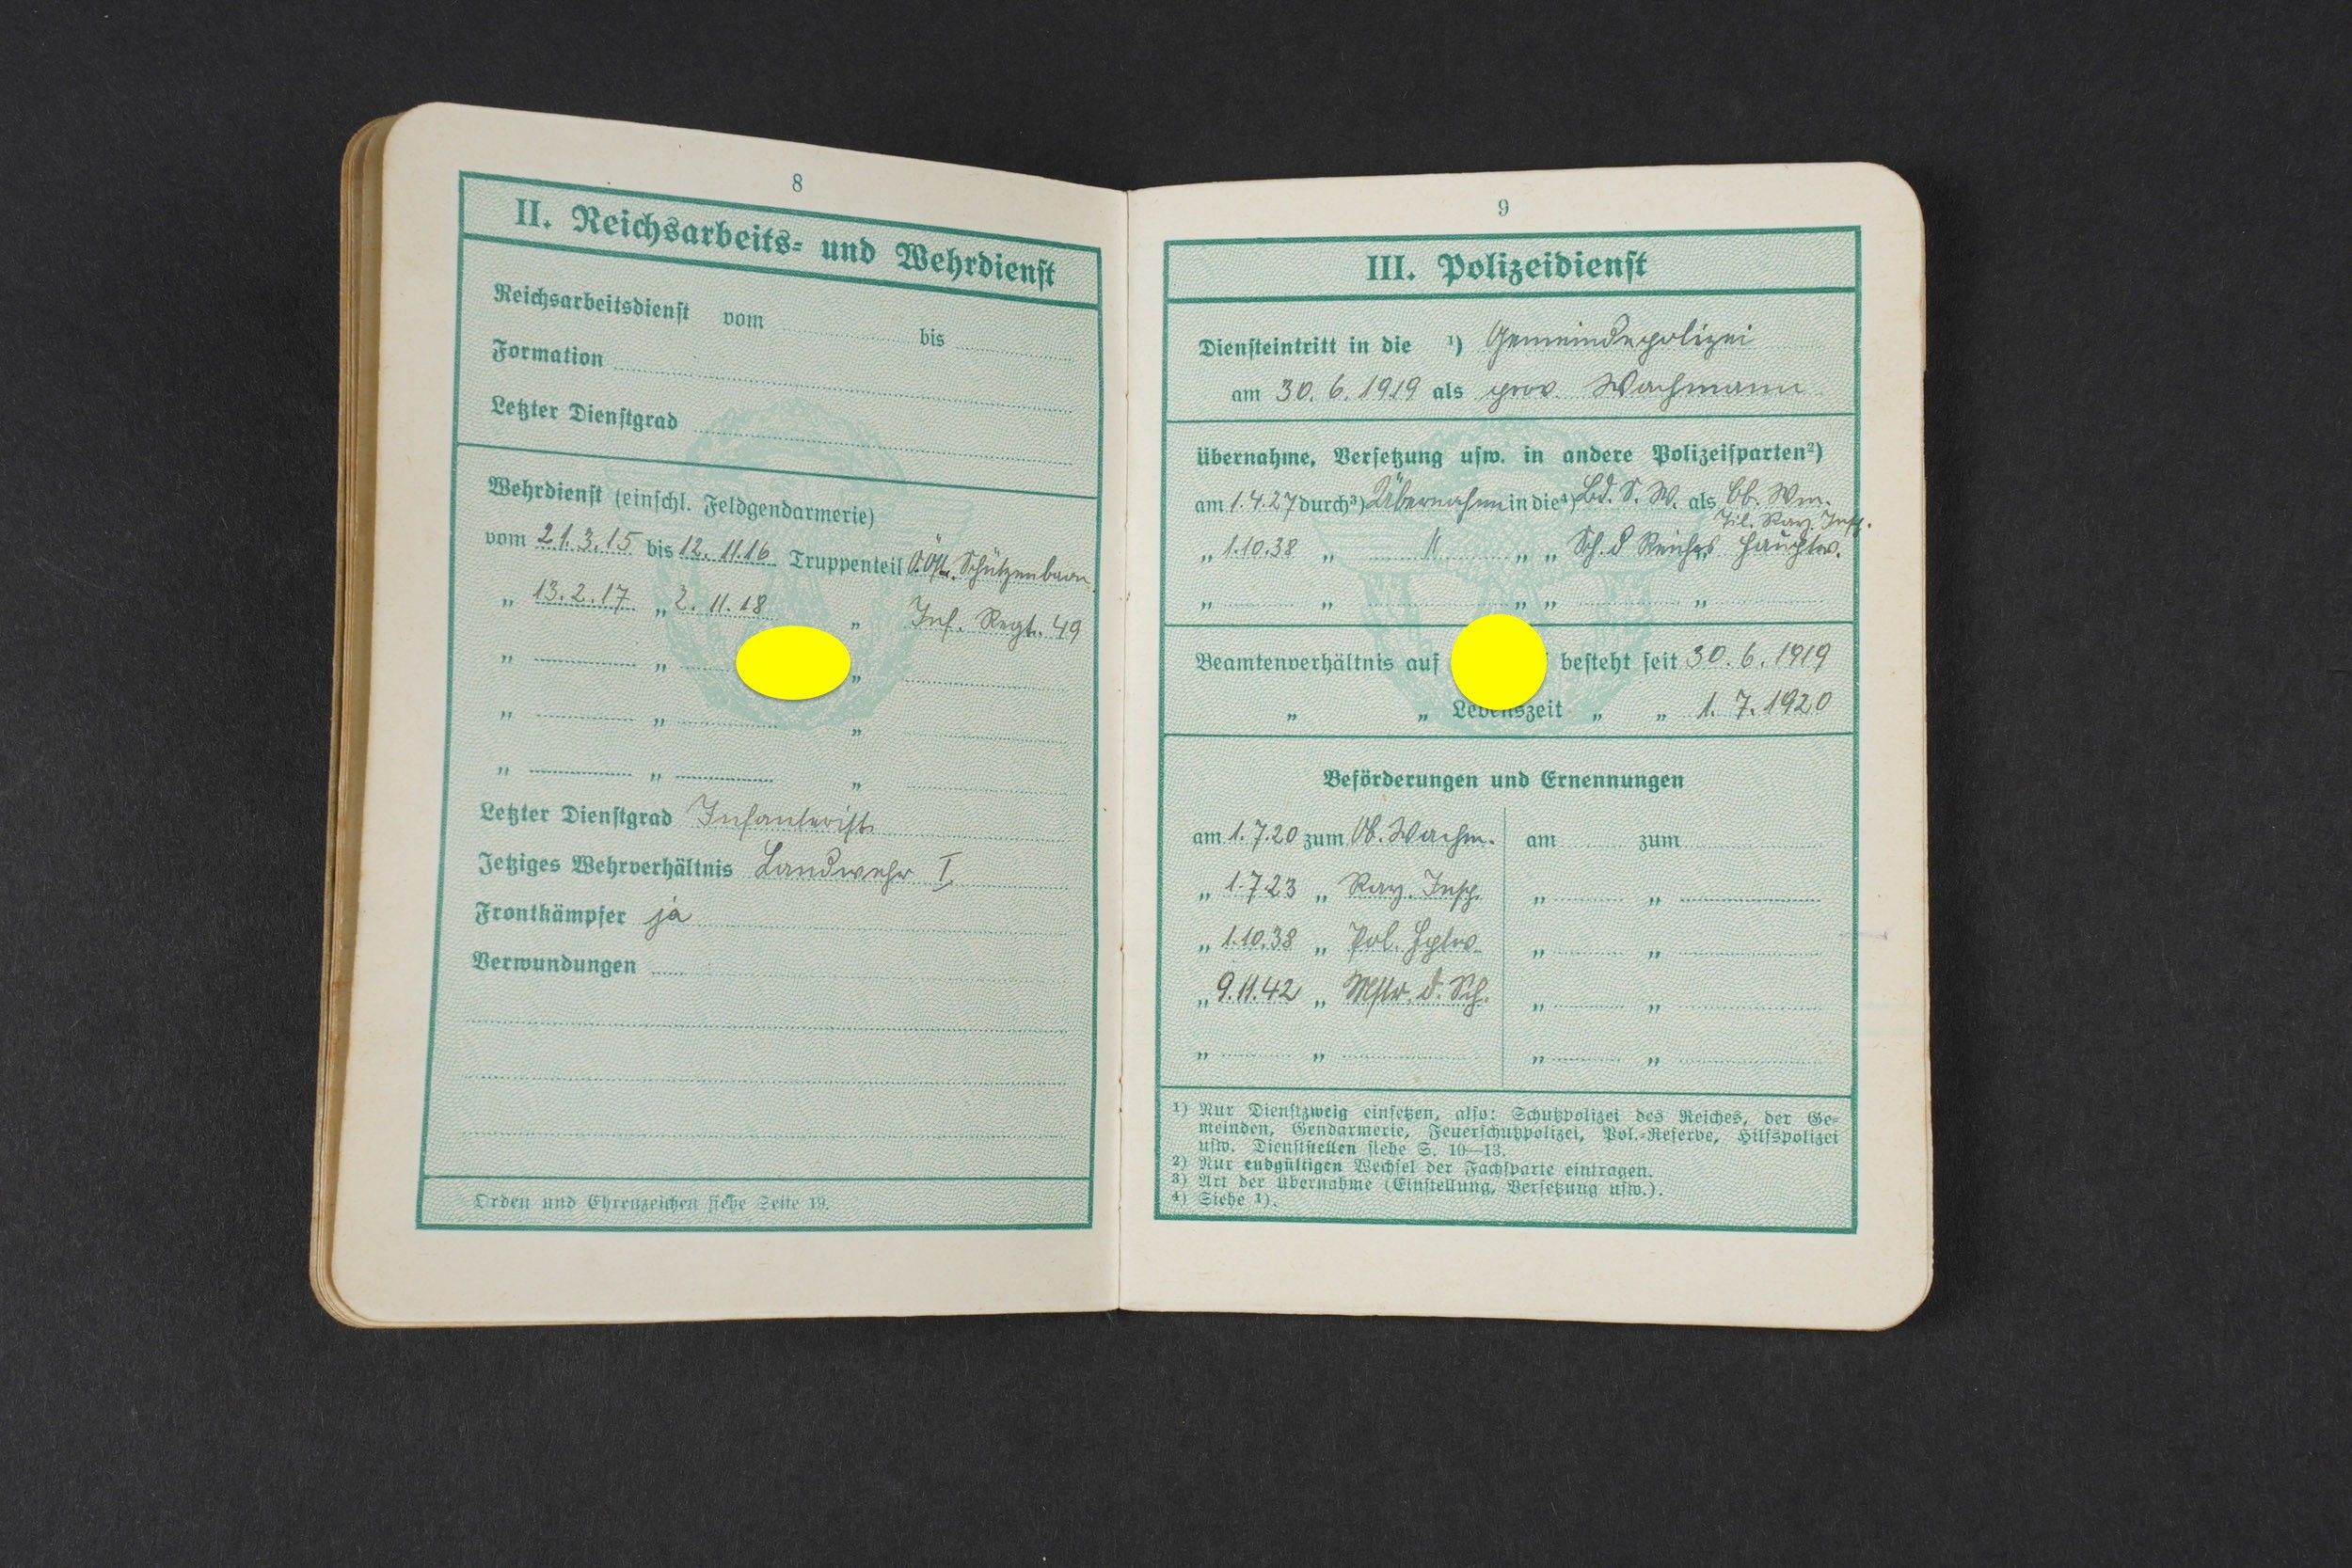 8
II. Reichsarbeits- und Wehrdienst
Reichsarbeitsdienst vom bis
Formation
Letzter Dienstgrad
Wehrdienst (einschl. Feldgendarmerie)
vom 21.3.15 bis 12.11.16 Truppenteil Schützenbaon
„ 13.2.17 „ 2.11.18 „ Inf. Regt. 49
„ „ „
„ „ „
„ „ „
Letzter Dienstgrad Infanterist
Jetziges Wehrverhältnis Landwehr I
Frontkämpfer ja
Verwundungen
Orden und Ehrenzeichen siehe Seite 19.
9
III. Polizeidienst
Diensteintritt in die ¹) Gemeindepolizei
am 30.6.1919 als prov. Wachmann
Übernahme, Versetzung usw. in andere Polizeisparten²)
am 1.4.27 durch³) Übernahme in die⁴) Bd. S. W. als Ob. Wm.
Tit. Ray. Insp.
„ 1.10.38 „ " „ „ Sch. d Reiches „ Hauptw.
„ „ „ „ „
Beamtenverhältnis auf besteht seit 30.6.1919
„ „ Lebenszeit „ „ 1.7.1920
Beförderungen und Ernennungen
am 1.7.20 zum Ob. Wachm. am zum
„ 1.7.23 „ Ray. Insp. „ „
„ 1.10.38 „ Pol. Hptw. „ „
„ 9.11.42 „ Mstr. d. Sch. „ „
„ „ „ „
¹) Nur Dienstzweig einsetzen, also: Schutzpolizei des Reiches, der Ge-
meinden, Gendarmerie, Feuerschutzpolizei, Pol.-Reserve, Hilfspolizei
usw. Dienststellen siehe S. 10—13.
²) Nur endgültigen Wechsel der Fachsparte eintragen.
³) Art der Übernahme (Einstellung, Versetzung usw.).
⁴) Siehe ¹).